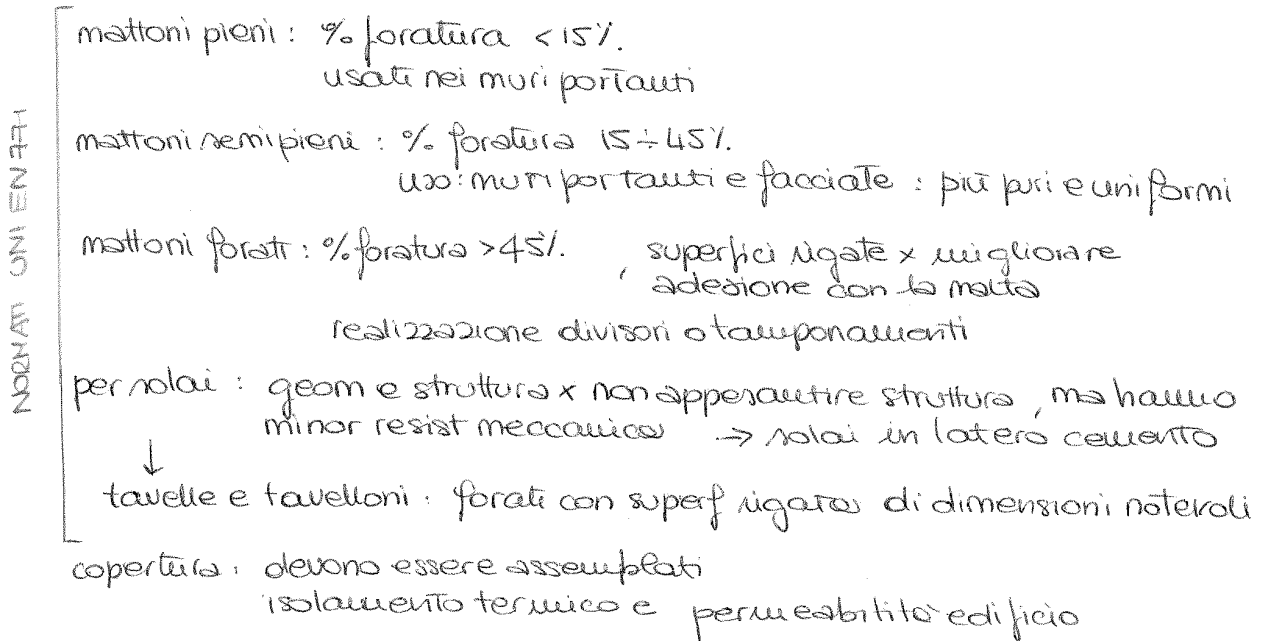 NORMATI UNI EN 771
mattoni pieni : % foratura < 15%.
usati nei muri portanti
mattoni semipieni : % foratura 15 ÷ 45%.
uso: muri portanti e facciate : più puri e uniformi
mattoni forati : % foratura > 45%. , superfici rigate x migliorare
adesione con la malta
realizzazione divisori o tamponamenti
per solai : geom e struttura x non appesantire struttura, ma hanno
minor resist meccanica → solai in latero cemento
↓
tavelle e tavelloni : forati con superf rigata di dimensioni notevoli
copertura : devono essere assemblati
isolamento termico e permeabilità edificio